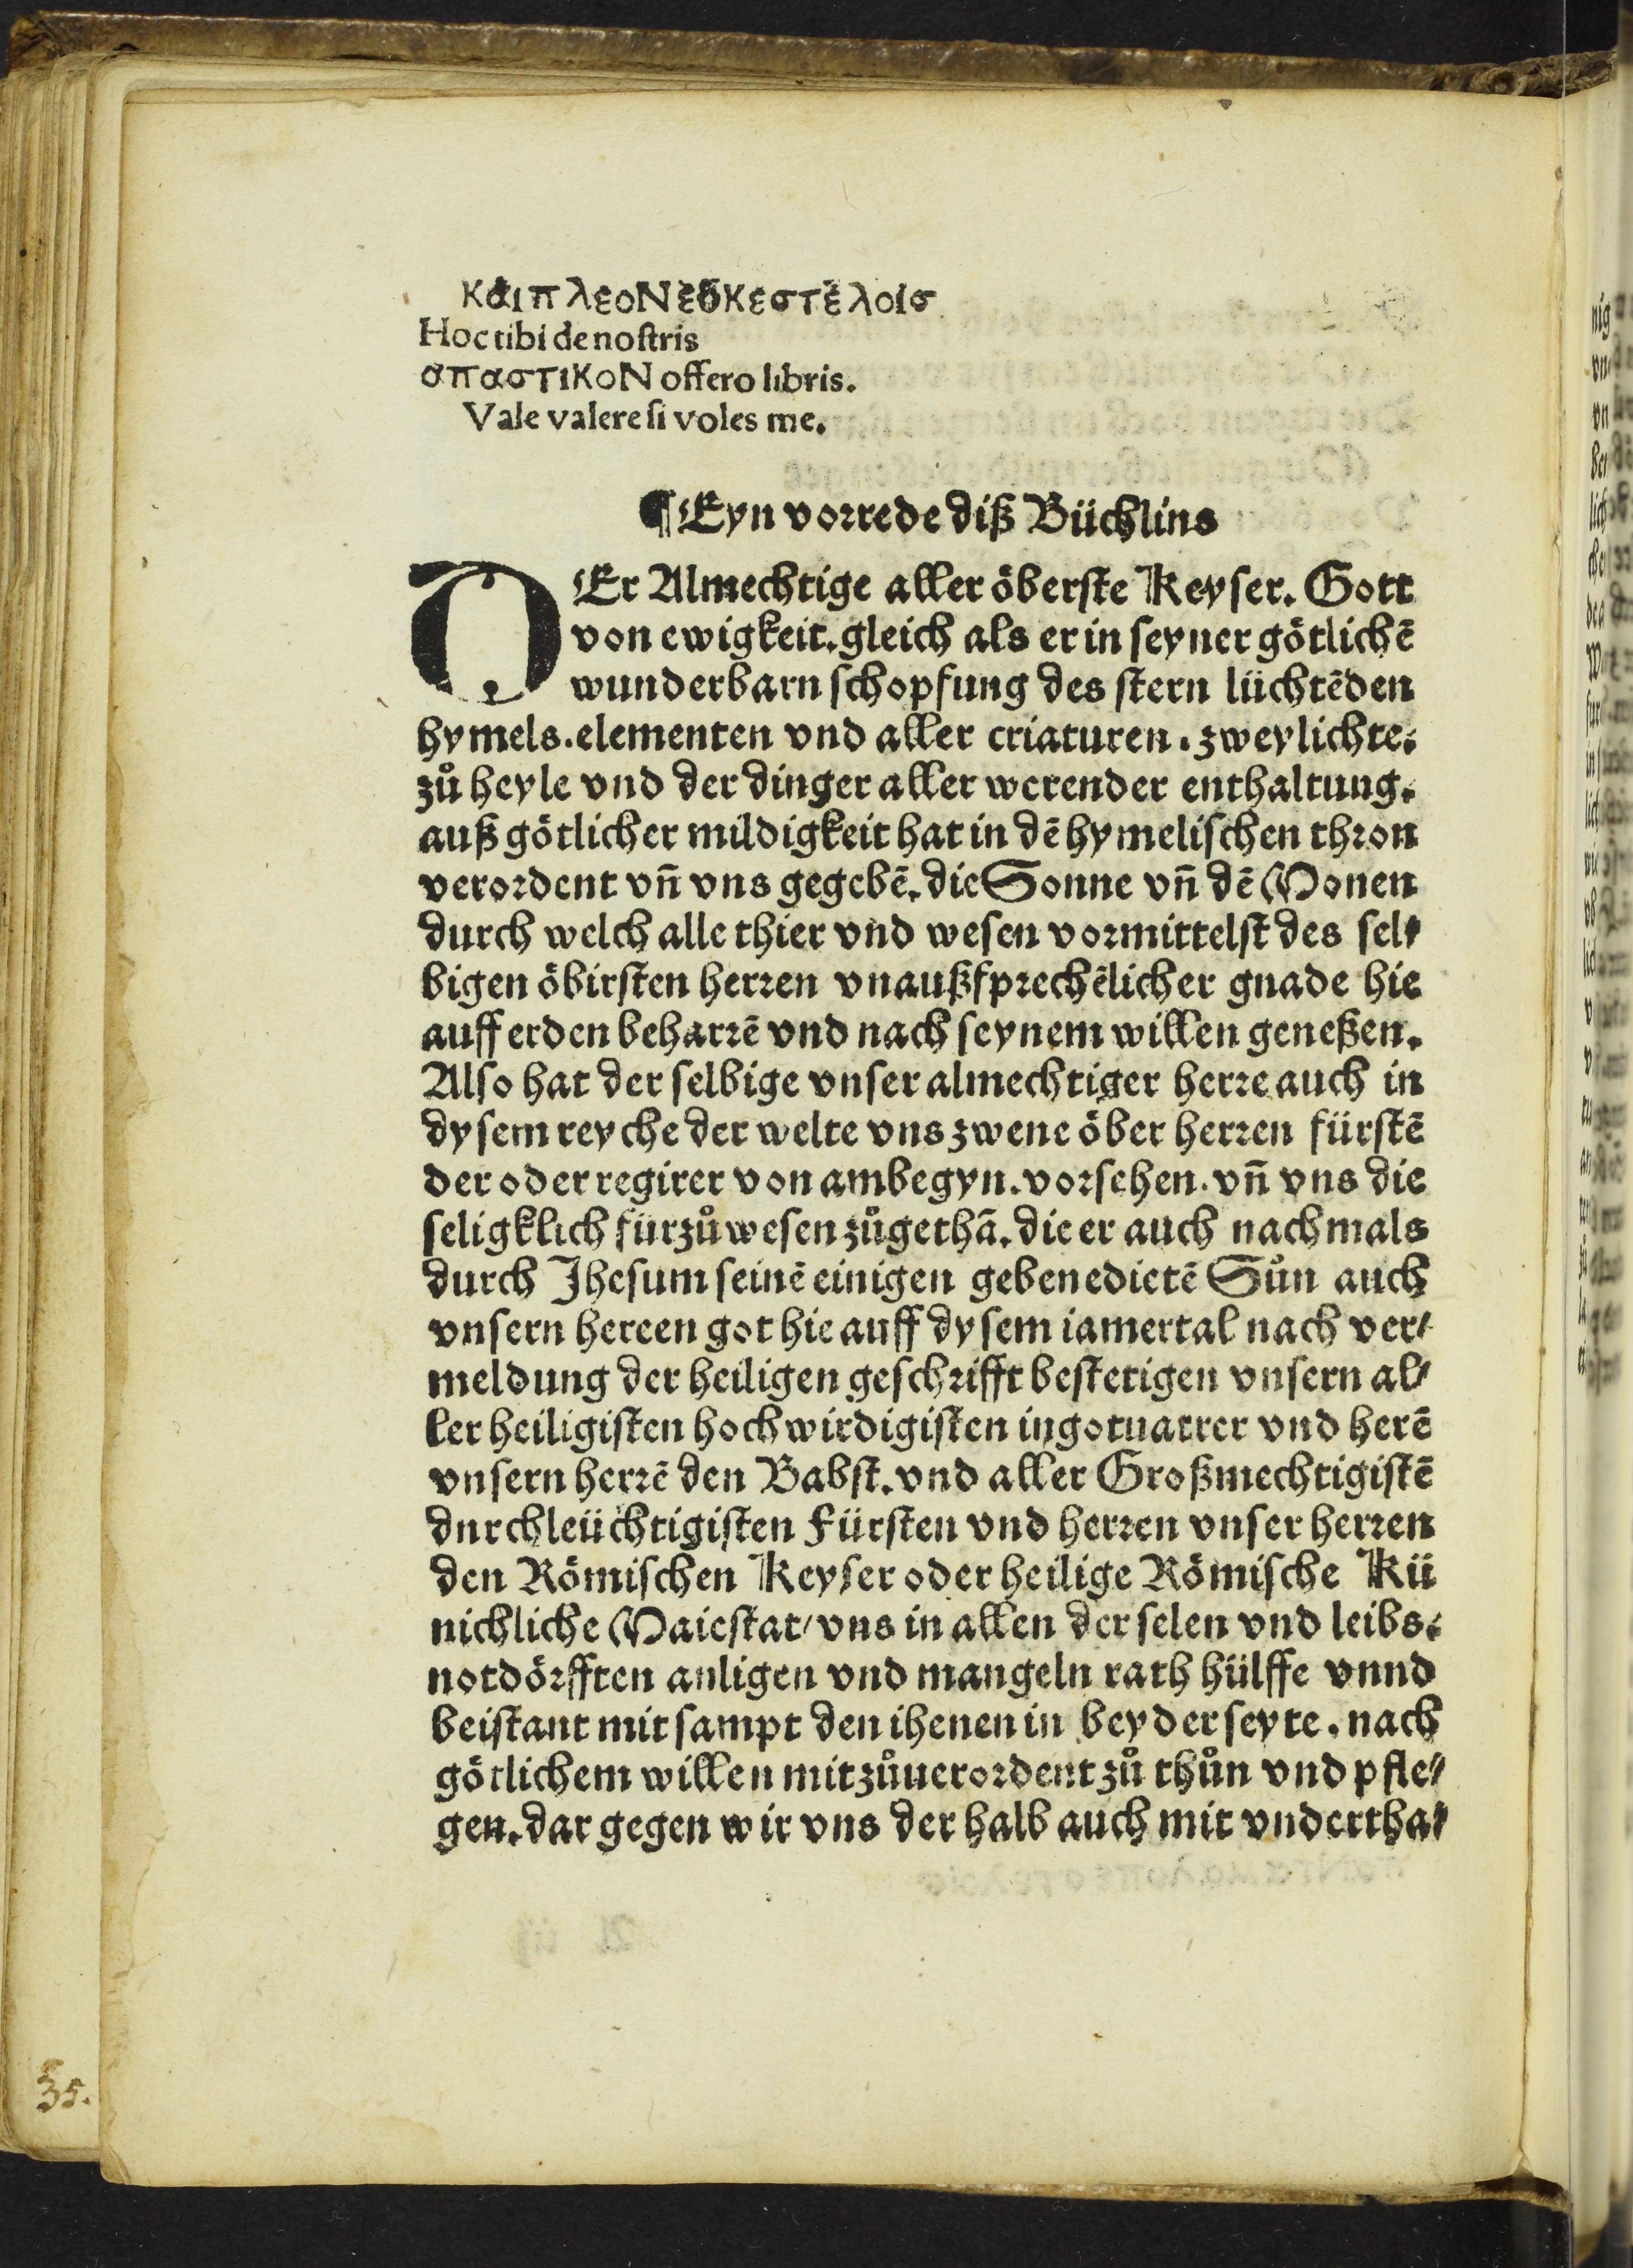 καιπλεοΝεȣκεστελοισ
Hoc tibi de nostris
σπαστικοΝ offero libris.
Vale valere si voles me.
¶ Eyn vorrede diß Büchlins
DEr Almechtige aller öberste Keyser. Gott
von ewigkeit. gleich als er in seyner götlichē
wunderbarn schopfung des stern lüchtēden
hymels. elementen vnd aller criaturen. zwey lichte.
zů heyle vnd der dinger aller werender enthaltung.
auß götlicher mildigkeit hat in dē hymelischen thron
verordent vn̄ vns gegebē. die Sonne vn̄ dē Monen
durch welch alle thier vnd wesen vormittelst des sel⸗
bigen öbirsten herren vnaußsprechēlicher gnade hie
auff erden beharrē vnd nach seynem willen geneßen.
Also hat der selbige vnser almechtiger herre auch in
dysem reyche der welte vns zwene öber herren fürstē
der oder regirer von ambegyn. vorsehen. vn̄ vns die
seligklich fürzůwesen zůgethā. die er auch nachmals
durch Jhesum seinē einigen gebenedietē Sůn auch
vnsern hereen got hie auff dysem iamertal nach ver⸗
meldung der heiligen geschrifft bestetigen vnsern al⸗
ler heiligisten hochwirdigisten in gotuatrer vnd herē
vnsern herrē den Babst. vnd aller Großmechtigistē
dnrchleüchtigisten Fürsten vnd herren vnser herren
den Römischen Keyser oder heilige Römische Kü
nichliche Maiestat/ vns in allen der selen vnd leibs.
notdörfften anligen vnd mangeln rath hülffe vnnd
beistant mit sampt den ihenen in beyder seyte. nach
götlichem willen mitzůuerordent zů thůn vnd pfle⸗
gen. dar gegen wir vns der halb auch mit vndertha⸗
35.